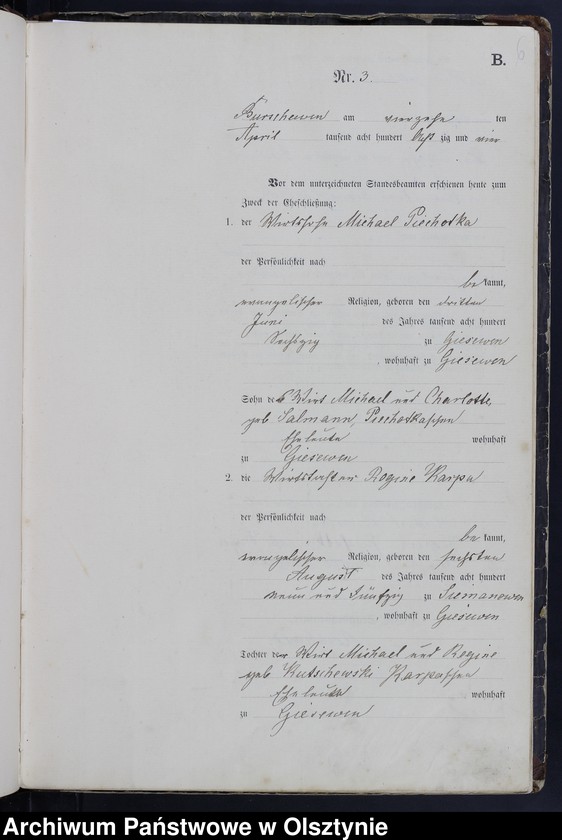 B.
6
Nr. 3.
Burschewen am vierzehn ten
April tausend acht hundert acht zig und vier
Vor dem unterzeichneten Standesbeamten erschienen heute zum
Zweck der Eheschließung:
1. der Wirtssohn Michael Piechotka
der Persönlichkeit nach
be kannt,
evangelischer Religion, geboren den dritten
Juni des Jahres tausend acht hundert
Sechszig zu Giesewen
, wohnhaft zu Giesewen
Sohn des Wirt Michael und Charlotte,
geb Salmann, Piechotkaschen
Eheleute wohnhaft
zu Giesewen
2. die Wirtstochter Regine Karpa
der Persönlichkeit nach
be kannt,
evangelischer Religion, geboren den sechsten
August des Jahres tausend acht hundert
neun und fünfzig zu Siemanowen
, wohnhaft zu Giesewen
Tochter der Wirt Michael und Regine
geb Kutschewski Karpaschen
Eheleute wohnhaft
zu Giesewen
Archiwum Państwowe w Olsztynie